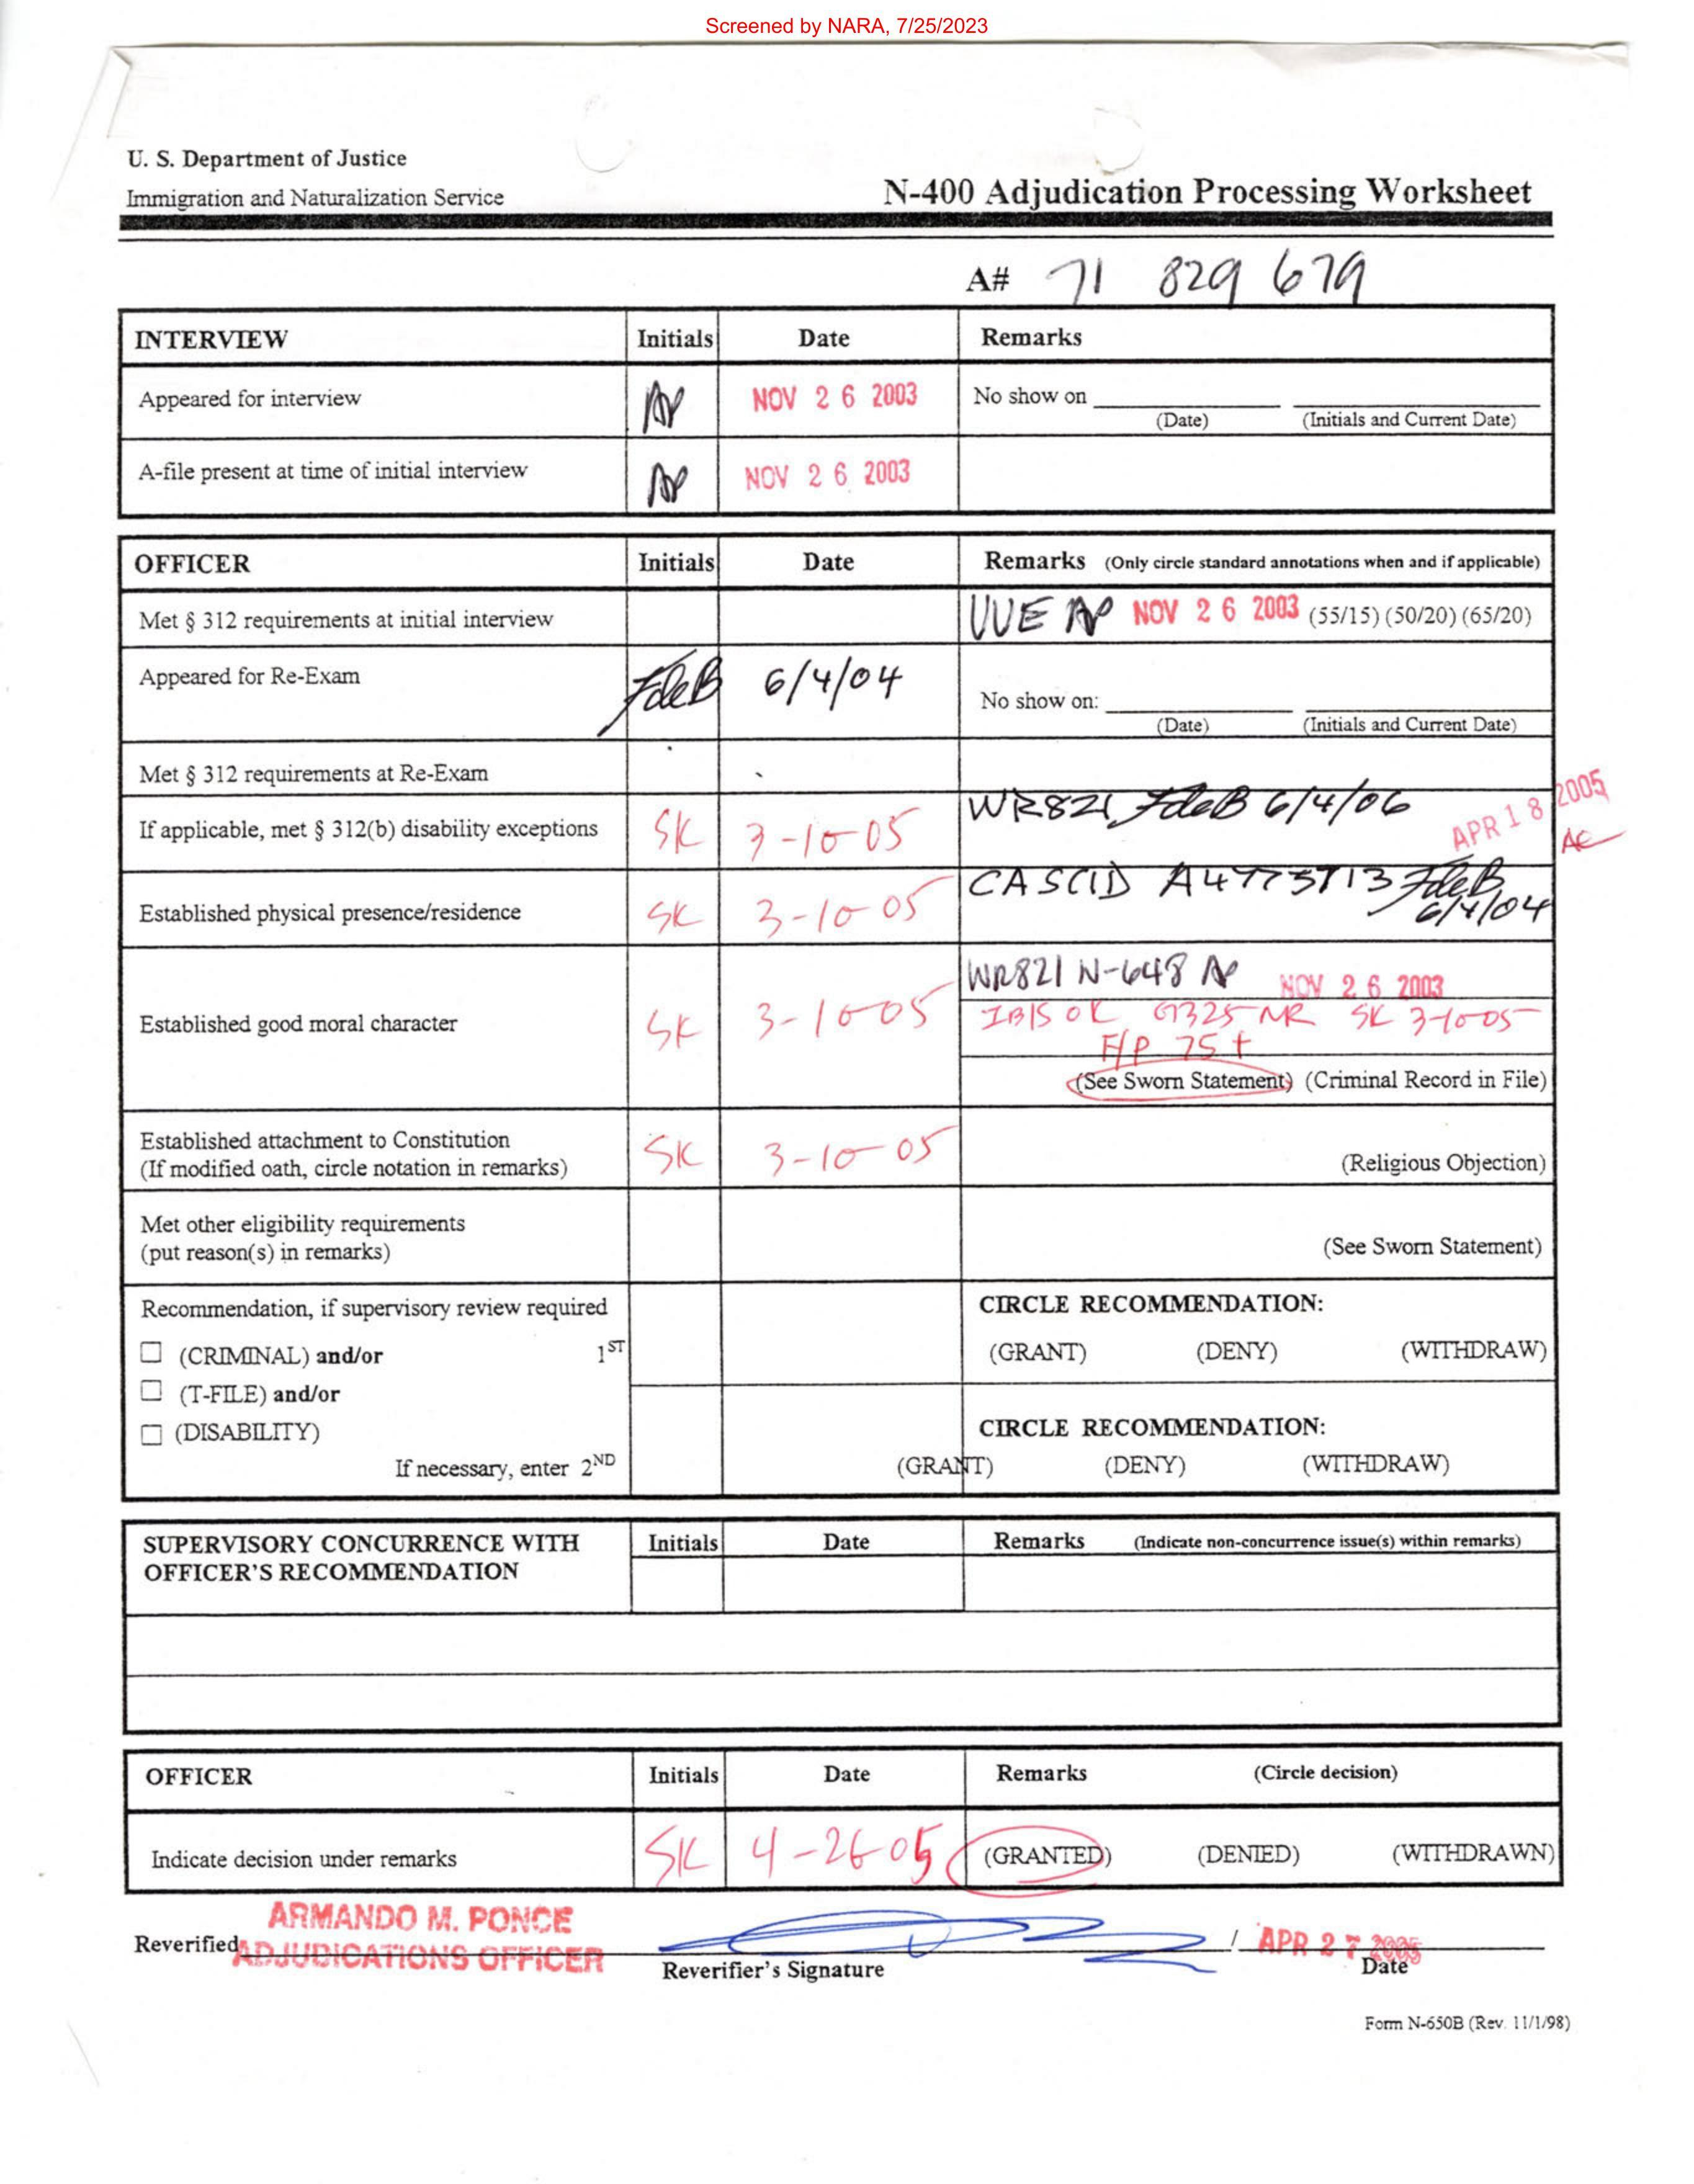 Screened by NARA, 7/25/2023
U. S. Department of Justice
Immigration and Naturalization Service
N-400 Adjudication Processing Worksheet
A# 71 829 679
INTERVIEW Initials Date Remarks
Appeared for interview AP NOV 26 2003 No show on
(Date) (Initials and Current Date)
A-file present at time of initial interview AP NOV 26 2003
OFFICER Initials Date Remarks (Only circle standard annotations when and if applicable)
Met § 312 requirements at initial interview UUE AP NOV 26 2003 (55/15) (50/20) (65/20)
Appeared for Re-Exam FdeB 6/4/04 No show on:
(Date) (Initials and Current Date)
Met § 312 requirements at Re-Exam
WR821 FdeB 6/4/06 APR 18 2005
If applicable, met § 312(b) disability exceptions SK 3-10-05
CASCID FdeB
Established physical presence/residence SK 3-10-05 6/4/04
WR821 N-648 AP NOV 26 2003
Established good moral character SK 3-10-05 IBIS OK G325 NR SK 3-10-05
F/P 75+
(See Sworn Statement) (Criminal Record in File)
Established attachment to Constitution SK 3-10-05
(If modified oath, circle notation in remarks) (Religious Objection)
Met other eligibility requirements
(put reason(s) in remarks) (See Sworn Statement)
Recommendation, if supervisory review required CIRCLE RECOMMENDATION:
☐ (CRIMINAL) and/or 1ST (GRANT) (DENY) (WITHDRAW)
☐ (T-FILE) and/or
☐ (DISABILITY) CIRCLE RECOMMENDATION:
If necessary, enter 2ND (GRANT) (DENY) (WITHDRAW)
SUPERVISORY CONCURRENCE WITH Initials Date Remarks (Indicate non-concurrence issue(s) within remarks)
OFFICER'S RECOMMENDATION
OFFICER Initials Date Remarks (Circle decision)
Indicate decision under remarks SK 4-26-05 (GRANTED) (DENIED) (WITHDRAWN)
ARMANDO M. PONCE
Reverified ADJUDICATIONS OFFICER / APR 27 2005
Reverifier's Signature Date
Form N-650B (Rev. 11/1/98)